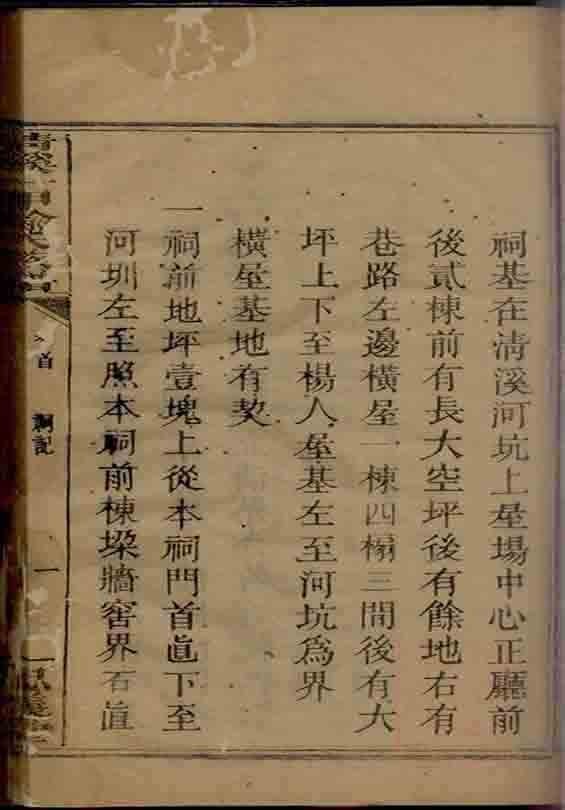 祠基在清溪河坑上屋場中心正廳前
後貳棟前有長大空坪後有餘地右有
巷路左邊橫屋一棟四榻三間後有大
坪上下至楊人屋基左至河坑為界
橫屋基地有契
一祠前地坪壹塊上從本祠門首直下至
河圳左至照本祠前棟垜牆窖界右直
首 祠記 一